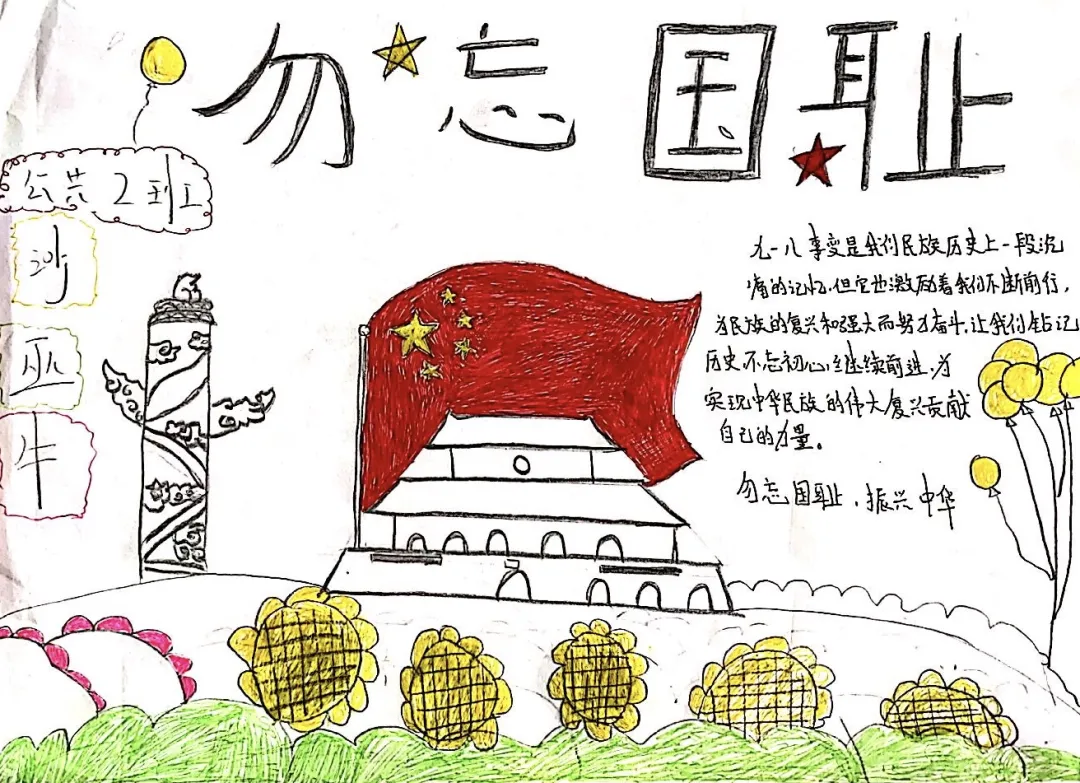 勿忘国耻
公共2班
沙
牛
九一八事变是我们民族历史上一段沉
痛的记忆,但它也激励着我们不断前行,
为民族的复兴和强大而努力奋斗,让我们铭记
历史不忘初心,继续前进,为
实现中华民族的伟大复兴贡献
自己的力量。
勿忘国耻,振兴中华